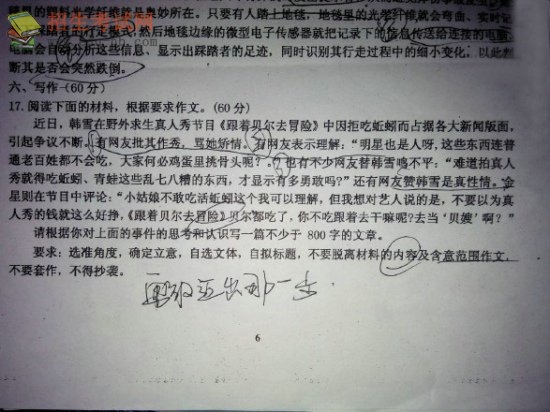 毯里的塑料光学纤维就是奥妙所在。只要有人踏上地毯，地毯里的光学纤维就会弯曲、实时记
然后地毯边缘的微型电子传感器就把记录下的信息传送给连接的电脑，
电脑会自动分析这些信息，显示出踩踏者的足迹，同时识别其行走过程中的细小变化，以此判
断其是否会突然跌倒。
六、写作（60 分）
17. 阅读下面的材料，根据要求作文。（60 分）
近日，韩雪在野外求生真人秀节目《跟着贝尔去冒险》中因拒吃蚯蚓而占据各大新闻版面，
引起争议不断。有网友批其作秀，骂她矫情，有网友表示理解：“明星也是人呀，这些东西连普
通老百姓都不会吃，大家何必鸡蛋里挑骨头呢？”也有不少网友替韩雪鸣不平：“难道拍真人
秀就得吃蚯蚓、青蛙这些乱七八糟的东西，才显示有多勇敢吗？”还有网友赞韩雪是真性情。金
星则在节目中评论：“小姑娘不敢吃活蚯蚓这个我可以理解，但我想对艺人说的是，不要以为真
人秀的钱就这么好挣，《跟着贝尔去冒险》贝尔都吃了，你不吃跟着去干嘛呢？去当‘贝嫂’啊？”
请根据你对上面的事件的思考和认识写一篇不少于 800 字的文章。
要求：选准角度，确定立意，自选文体，自拟标题，不要脱离材料的内容及含意范围作文，
不要套作，不得抄袭。
要敢迈出那一步
6